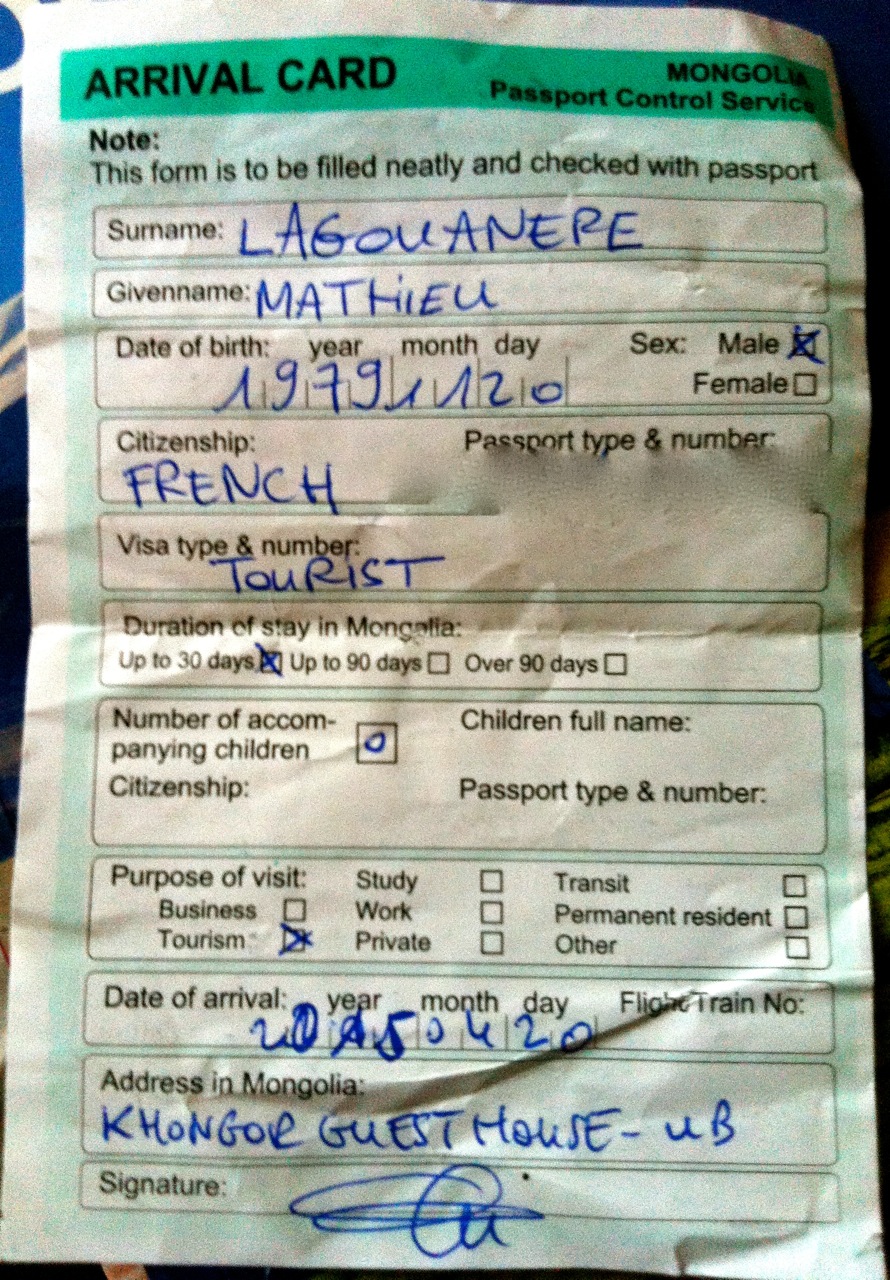 ARRIVAL CARD
MONGOLIA
Passport Control Service
Note:
This form is to be filled neatly and checked with passport
Surname: LAGOUANERE
Givenname: MATHIEU
Date of birth: year month day Sex: Male
19791120
Female
Citizenship: Passport type & number:
FRENCH
Visa type & number:
TOURIST
Duration of stay in Mongolia:
Up to 30 days Up to 90 days Over 90 days
Number of accom- Children full name:
panying children 0
Citizenship: Passport type & number:
Purpose of visit: Study Transit
Business Work Permanent resident
Tourism Private Other
Date of arrival: year month day Flight/Train No:
20150420
Address in Mongolia:
KHONGOR GUEST HOUSE - UB
Signature: